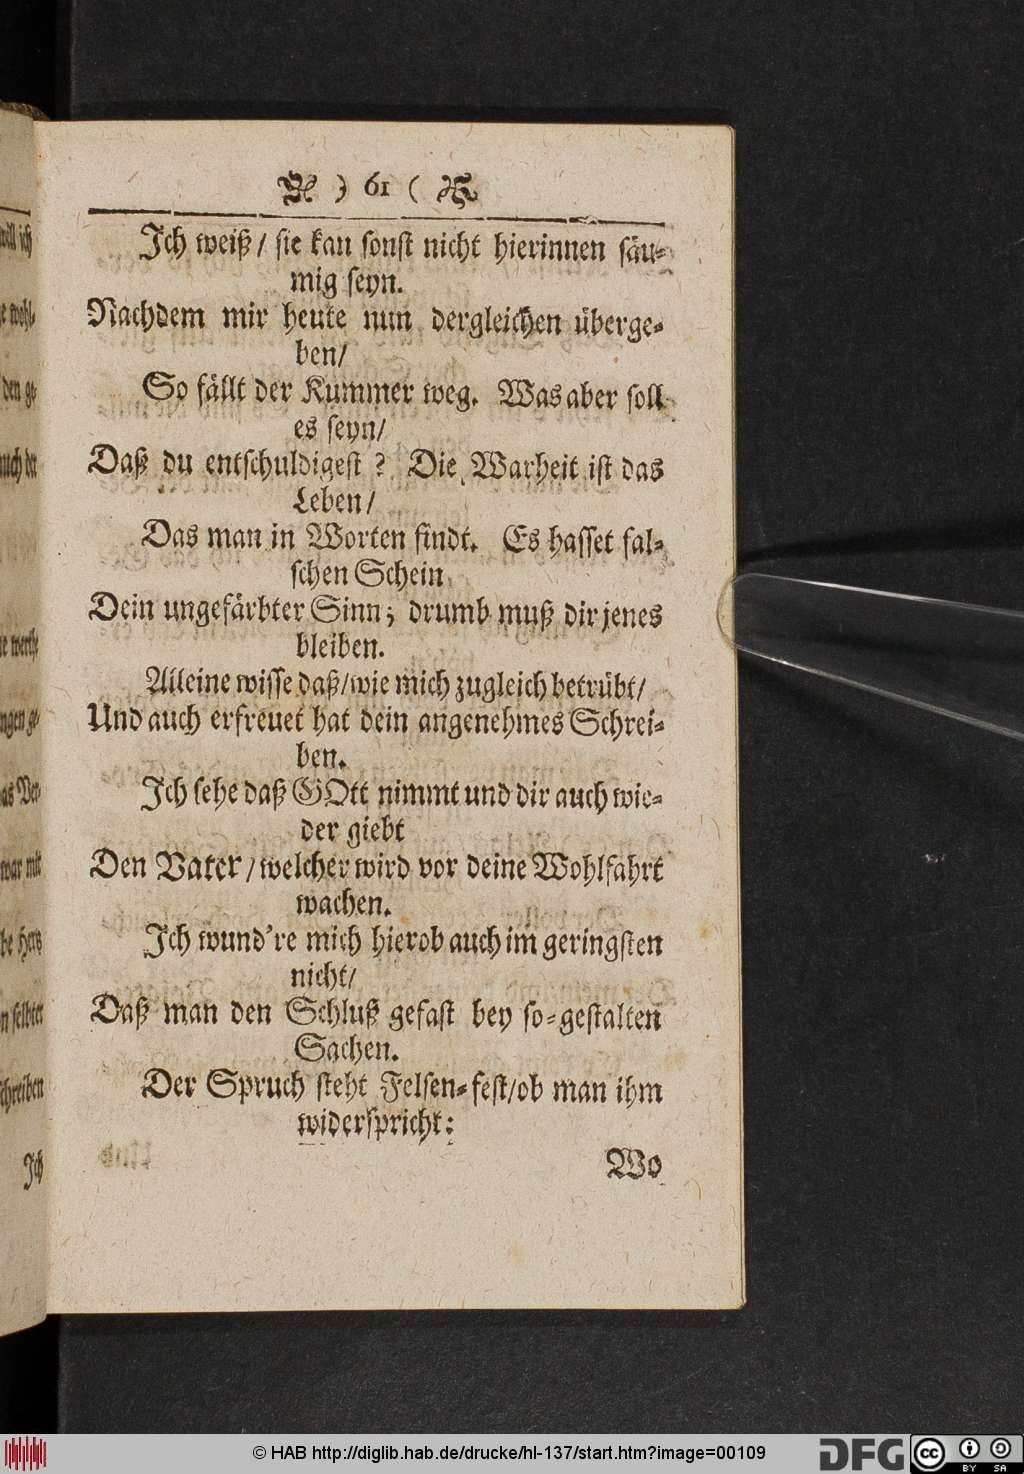 ) 61 (
Ich weiß / sie kan sonst nicht hierinnen säu-
mig seyn.
Nachdem mir heute nun dergleichen überge-
ben/
So fällt der Kummer weg. Was aber soll
es seyn/
Daß du entschuldigest ? Die Warheit ist das
Leben /
Das man in Worten findt. Es hasset fal-
schen Schein
Dein ungefärbter Sinn; drumb muß dir jenes
bleiben.
Alleine wisse daß/wie mich zugleich betrübt/
Und auch erfreuet hat dein angenehmes Schrei-
ben.
Ich sehe daß GOtt nimmt und dir auch wie-
der giebt
Den Vater / welcher wird vor deine Wohlfahrt
wachen.
Ich wund're mich hierob auch im geringsten
nicht/
Daß man den Schluß gefast bey so-gestalten
Sachen.
Der Spruch steht Felsen-fest/ob man ihm
widerspricht:
Wo
will ich
den ge-
auch der
war mit
selbter
Schreiben
Ich
© HAB http://diglib.hab.de/drucke/hl-137/start.htm?image=00109
DFG
cc BY SA